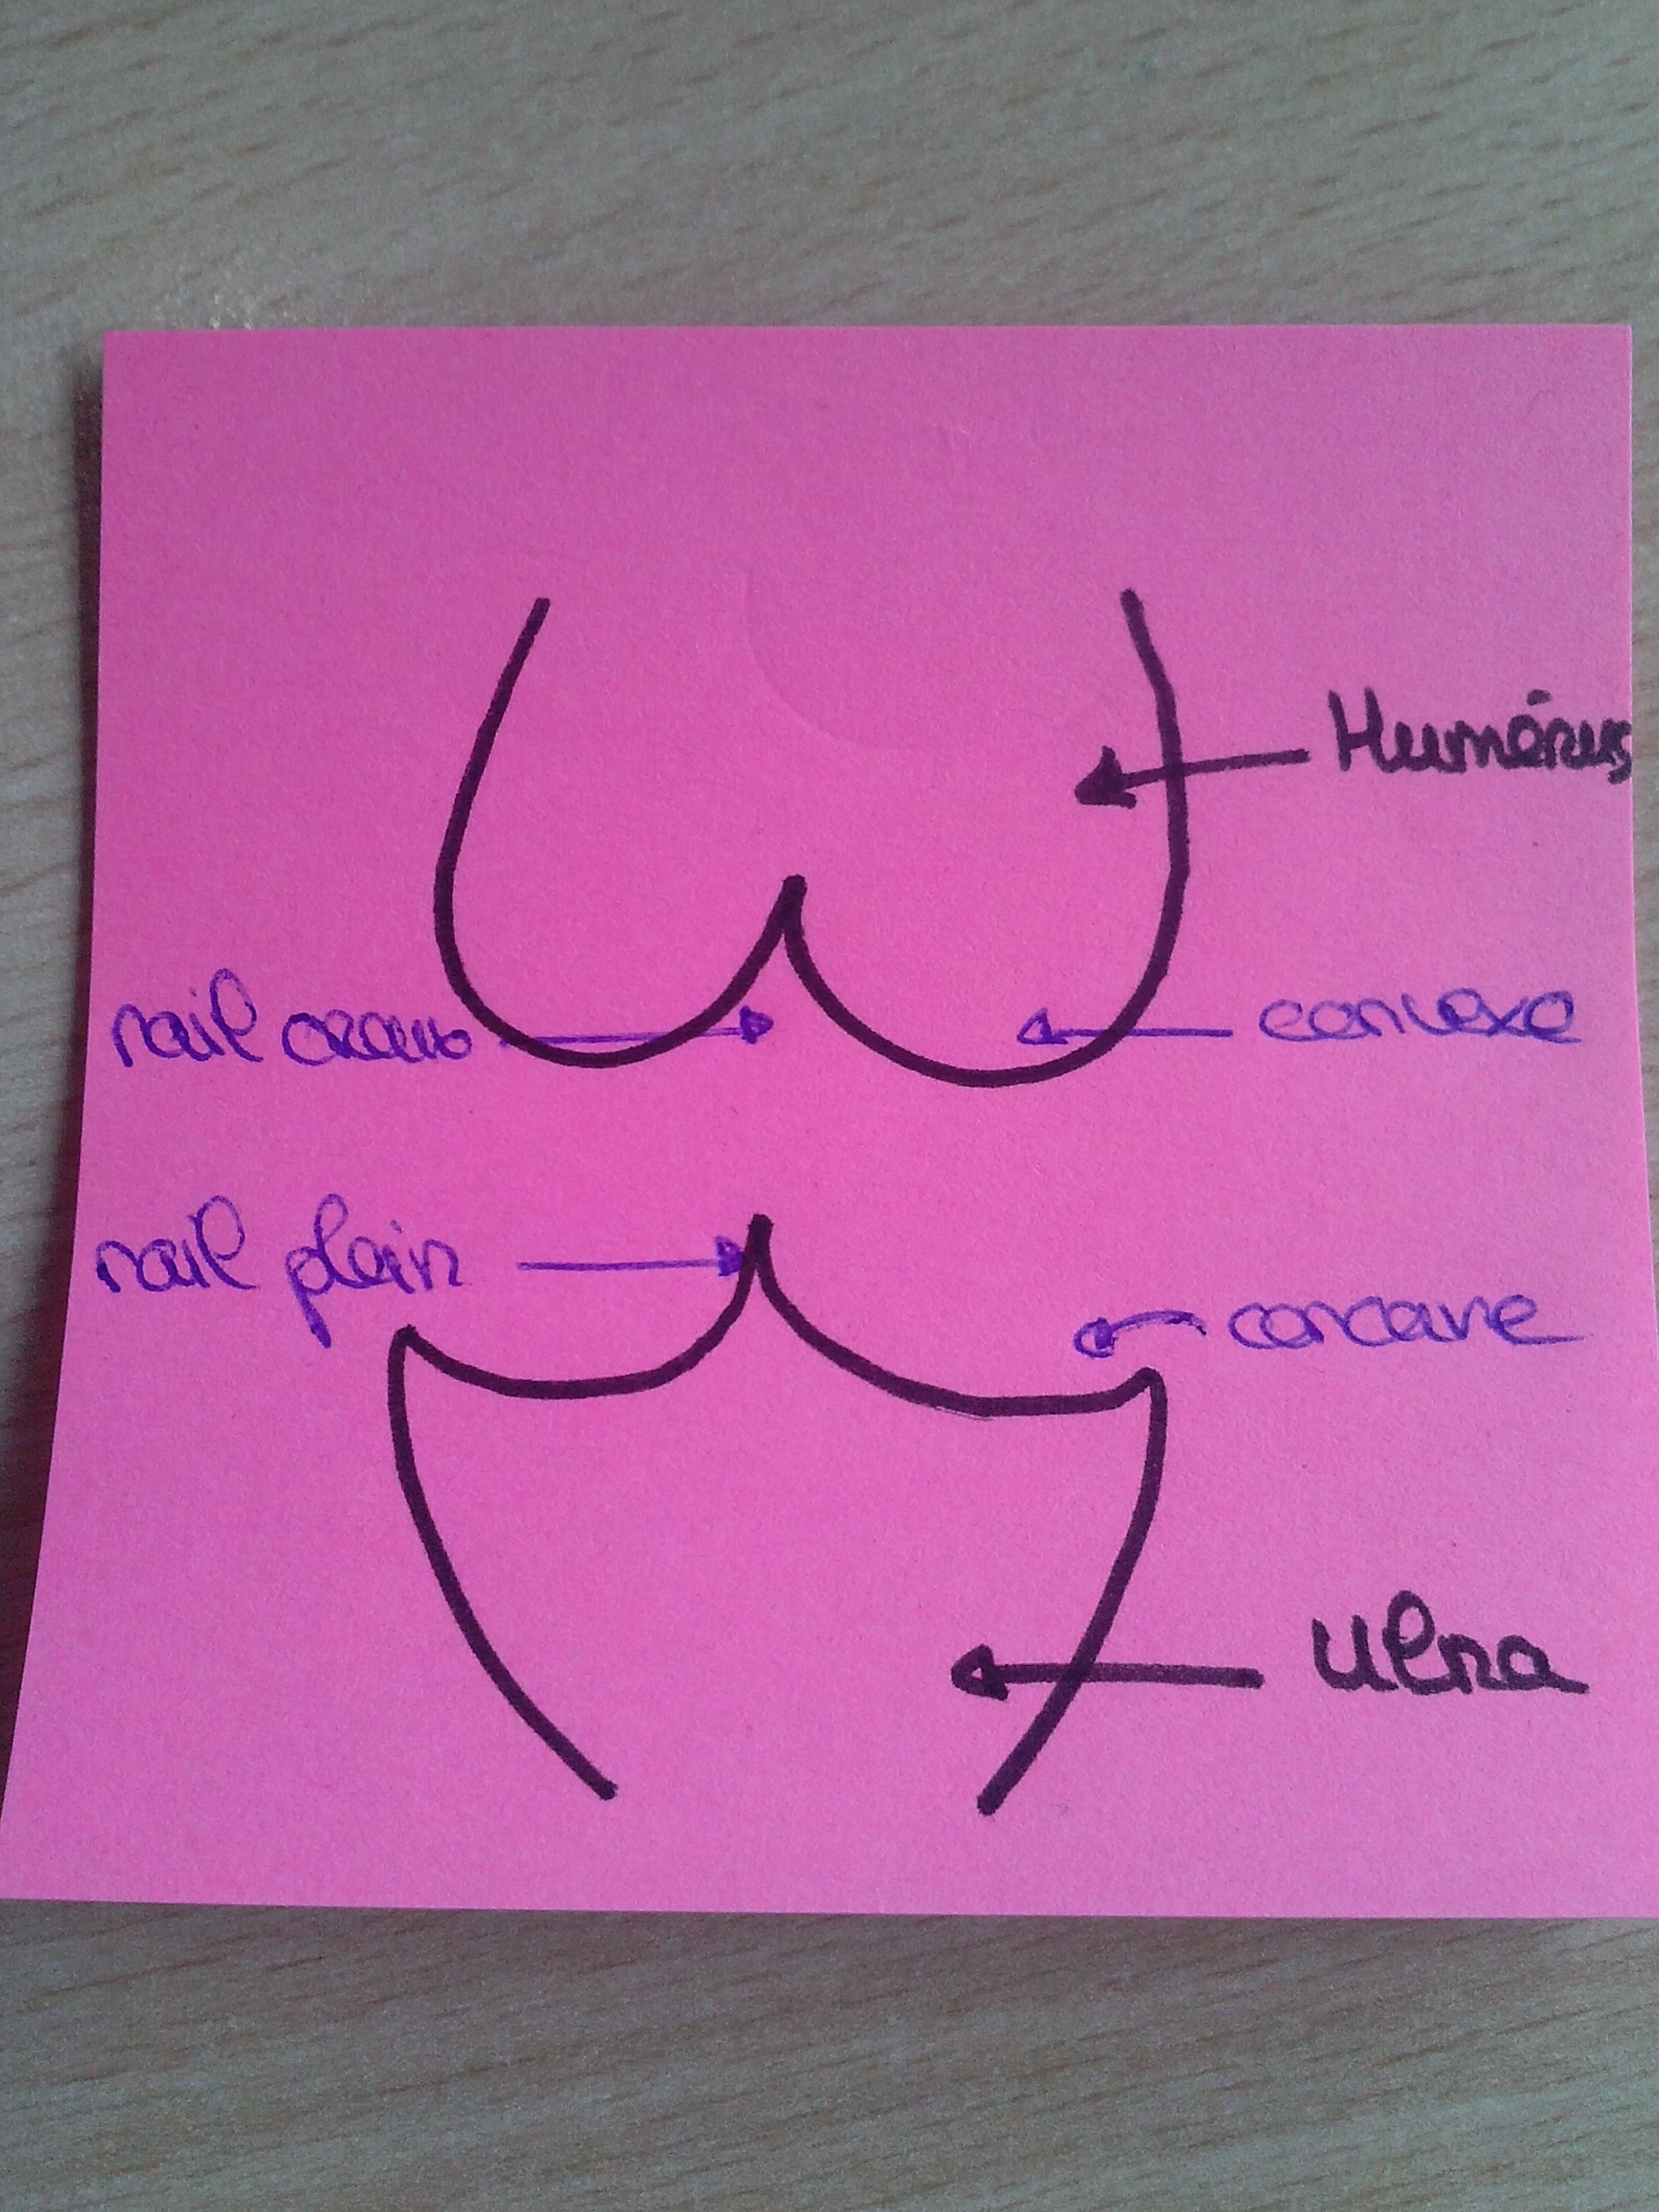 Humérus
rail creux
convexe
rail plein
concave
Ulna